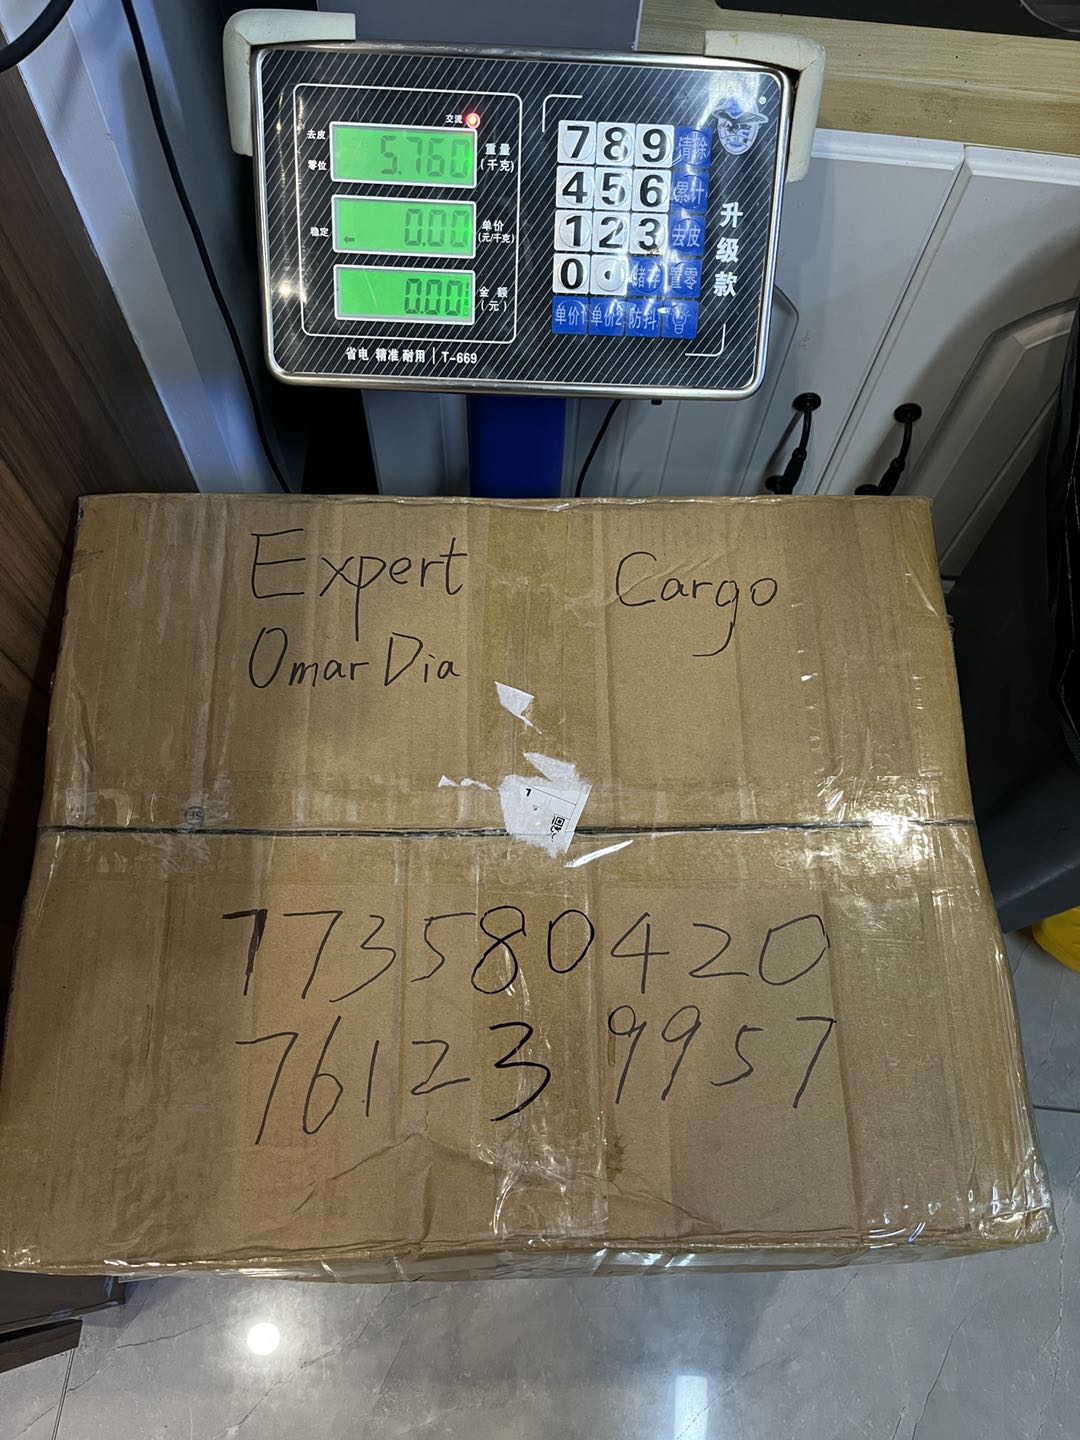 交流
去皮
零位
5.760
重量
(千克)
稳定
0.00
单价
(元/千克)
0.00
金额
(元)
省电 精准 耐用 | T-669
7 8 9 清除
4 5 6 累计
1 2 3 去皮
0 . 储存 置零
单价1 单价2 防抖
升级款
Expert Cargo
Omar Dia
1
773580420
761239957